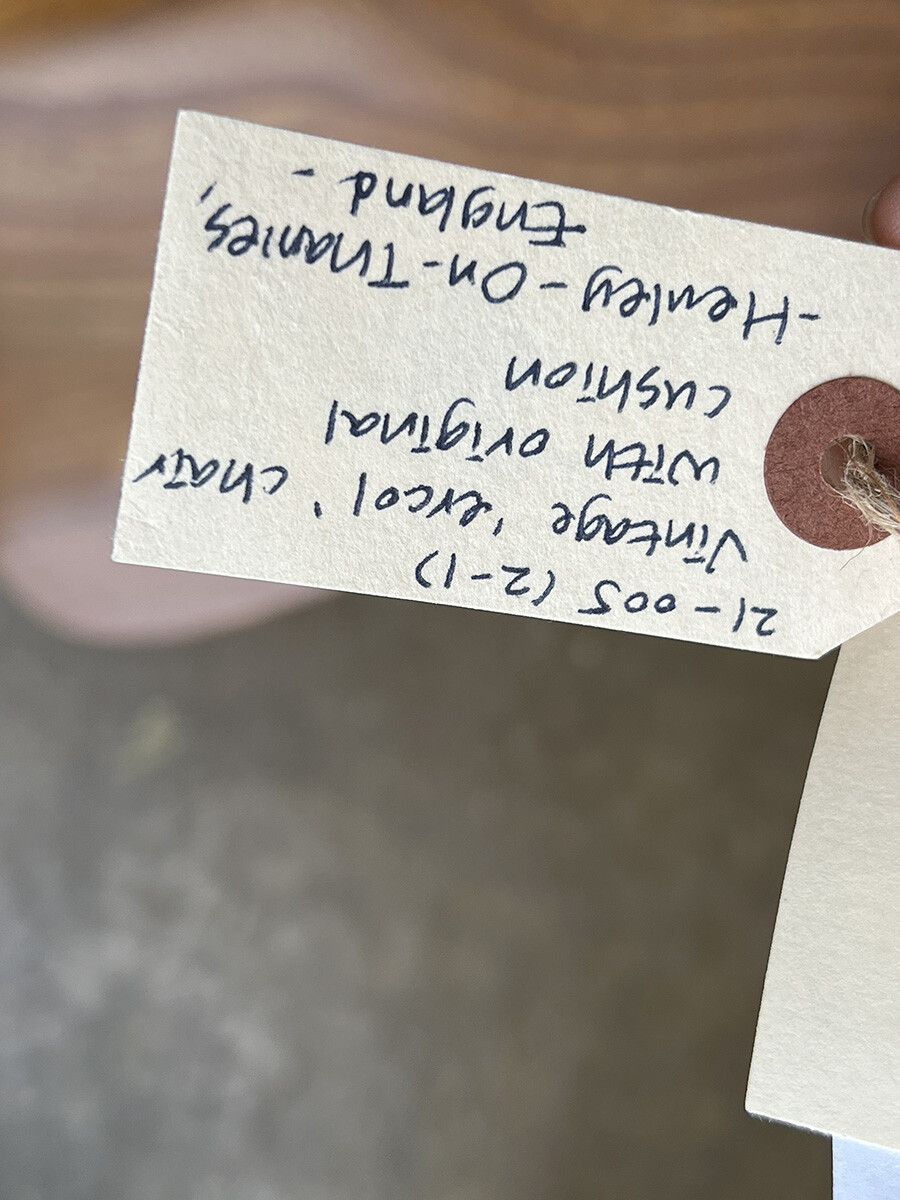 21-005 (2-1)
Vintage 'ercol' chair
with original
cushion
-Henley-On-Thames,
England-